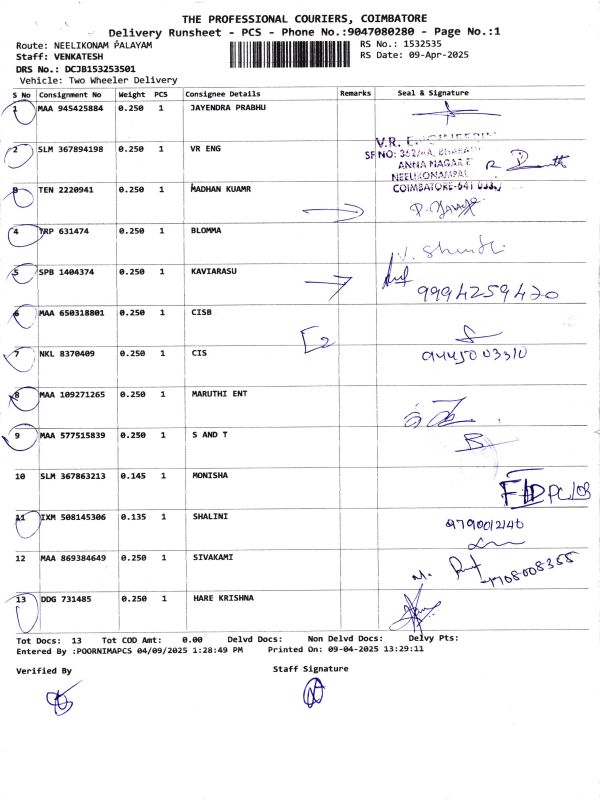 THE PROFESSIONAL COURIERS, COIMBATORE
Delivery Runsheet - PCS - Phone No.:9047080280 - Page No.:1
Route: NEELIKONAM PALAYAM
RS No.: 1532535
Staff: VENKATESH
RS Date: 09-Apr-2025
DRS No.: DCJB153253501
Vehicle: Two Wheeler Delivery
S No Consignment No Weight PCS Consignee Details Remarks Seal & Signature
1 MAA 945425884 0.250 1 JAYENDRA PRABHU
2 SLM 367894198 0.250 1 VR ENG
V.R.
SF NO:
ANNA NAGAR
COIMBATORE-641
3 TEN 2220941 0.250 1 MADHAN KUAMR
4 TRP 631474 0.250 1 BLOMMA
5 SPB 1404374 0.250 1 KAVIARASU
9994259420
6 MAA 650318801 0.250 1 CISB
7 NKL 8370409 0.250 1 CIS
9445003310
8 MAA 109271265 0.250 1 MARUTHI ENT
9 MAA 577515839 0.250 1 S AND T
10 SLM 367863213 0.145 1 MONISHA
11 IXM 508145306 0.135 1 SHALINI
9790012140
12 MAA 869384649 0.250 1 SIVAKAMI
13 DDG 731485 0.250 1 HARE KRISHNA
Tot Docs: 13 Tot COD Amt: 0.00 Delvd Docs: Non Delvd Docs: Delvy Pts:
Entered By :POORNIMAPCS 04/09/2025 1:28:49 PM Printed On: 09-04-2025 13:29:11
Verified By Staff Signature